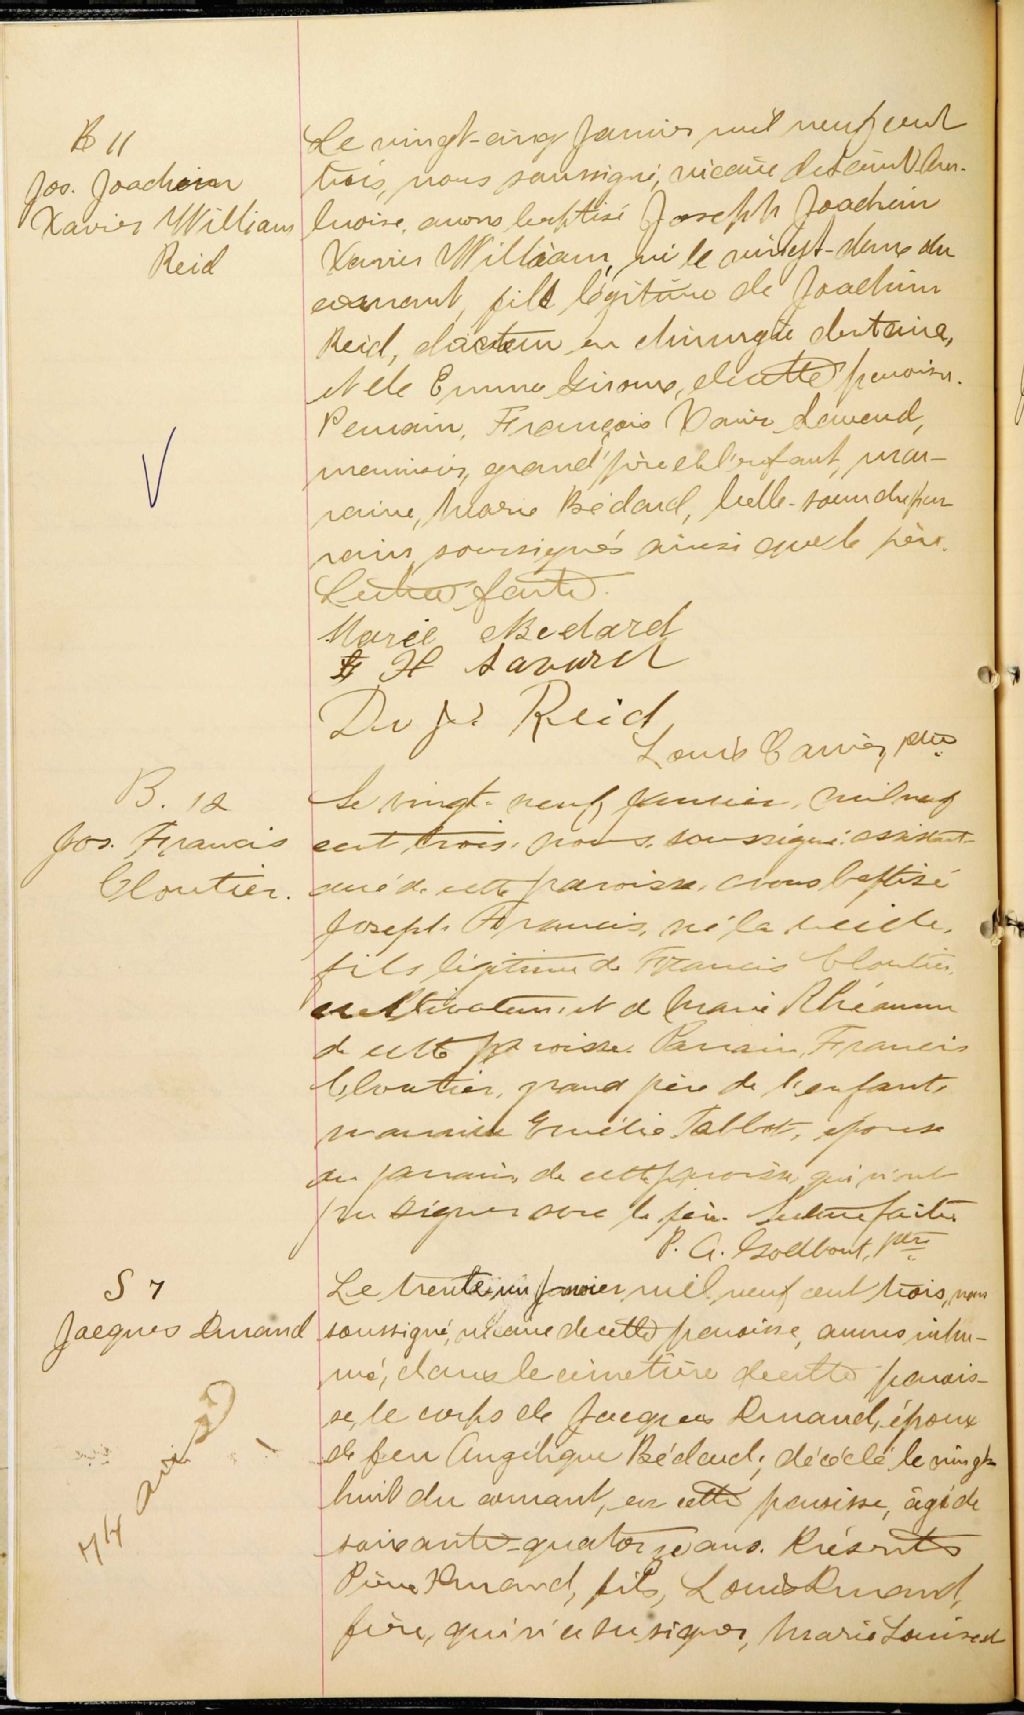 B 11
Jos. Joachim
Xavier William
Reid
Le vingt-cinq Janvier mil neuf cent
trois, nous soussigné, vicaire de saint Am-
broise, avons baptisé Joseph Joachim
Xavier William, né le vingt-deux du
courant, fils légitime de Joachim
Reid, docteur en chirurgie dentaire,
et de Emma, de cette paroisse.
Parrain, François Xavier Savard,
menuisier, grand'père de l'enfant, mar-
raine, Marie Bédard, belle-soeur du par
rain, soussignés ainsi que le père.
Lecture faite.
Marie Bedard
H Savard
Dr Js Reid
Louis Carrier, ptre
B. 12
Jos. Francis
Cloutier.
Le vingt-neuf Janvier, mil neuf
cent trois, nous, soussigné, assistant-
curé de cette paroisse, avons baptisé
Joseph Francis, né la veille,
fils légitime de Francis Cloutier,
cultivateur, et de Marie Rhéaume
de cette paroisse. Parrain, Francis
Cloutier, grand père de l'enfant,
marraine Emélie Talbot, épouse
du parrain, de cette paroisse, qui n'ont
pu signer avec le père. Lecture faite
P. A. Godbout, ptre
S 7
Jacques Renaud
74 ans
Le trente-un Janvier mil neuf cent trois, nous
soussigné, vicaire de cette paroisse, avons inhu-
mé, dans le cimetière de cette parois-
se, le corps de Jacques Renaud, époux
de feu Angélique Bédard, décédé le vingt-
huit du courant, en cette paroisse, âgé de
soixante-quatorze ans. Présents
Pierre Renaud, fils, Louis Renaud,
frère, qui n'a su signer, Marie Louise